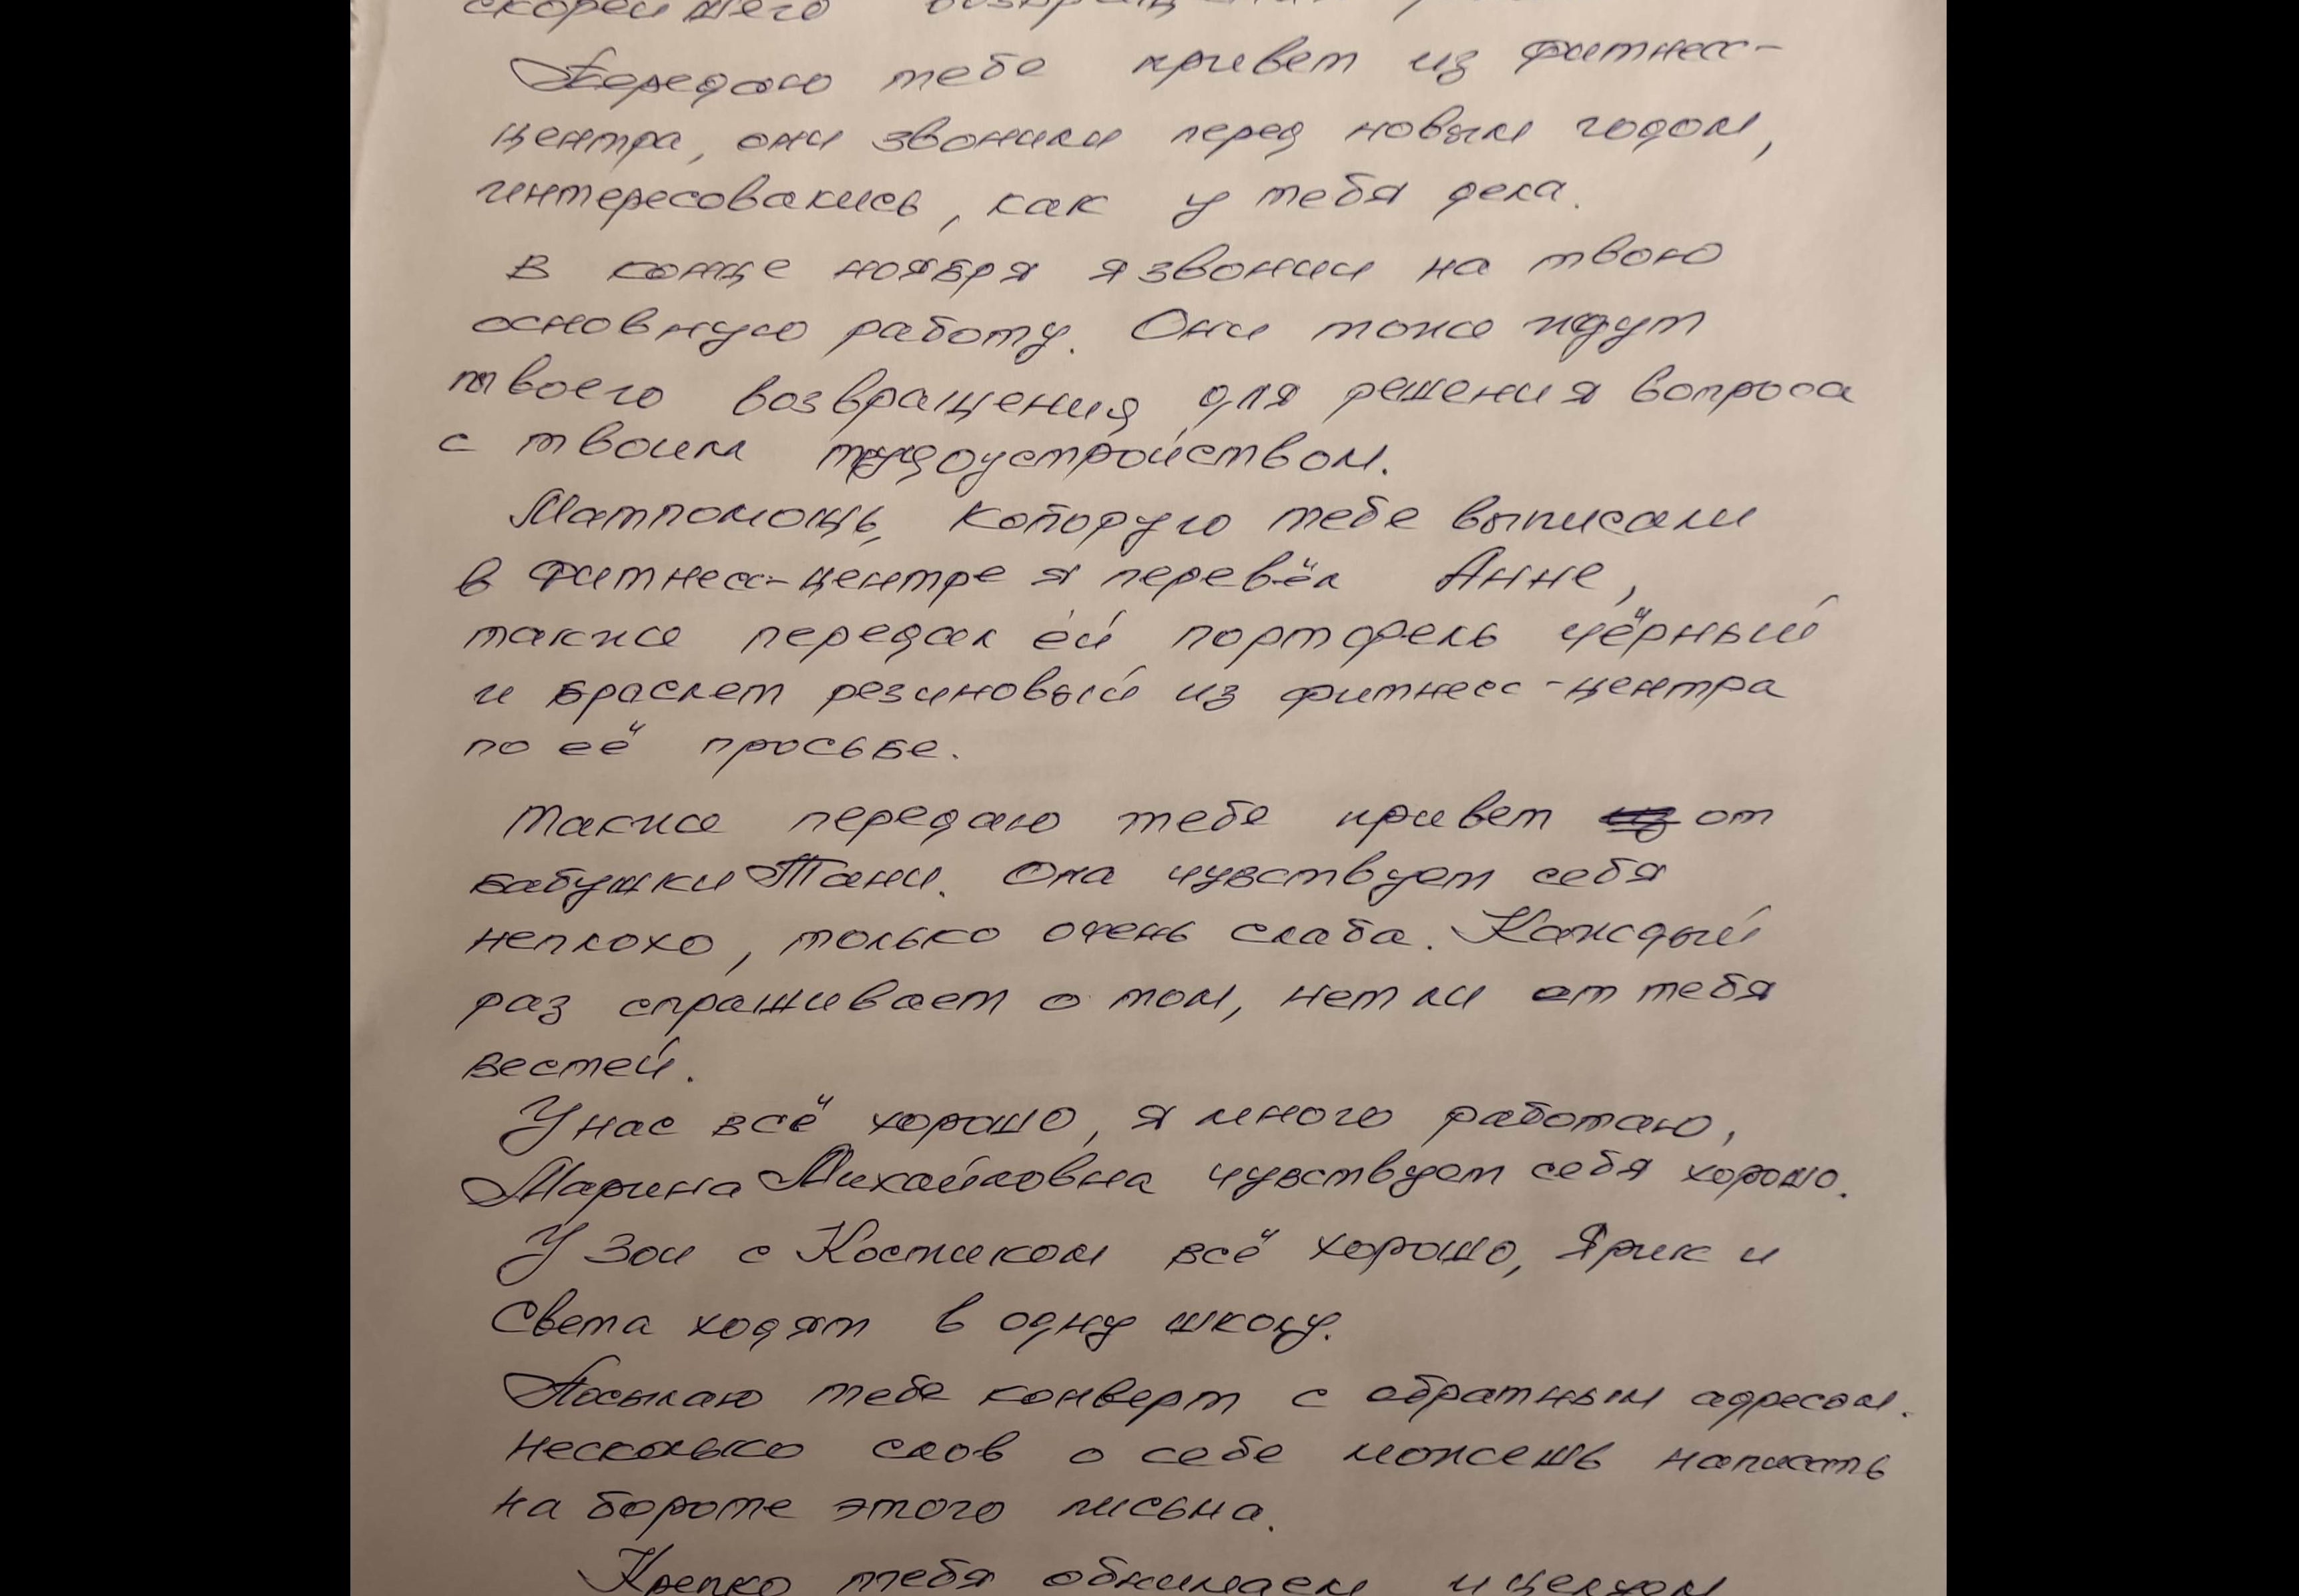 скорейшего
Передаю тебе привет из фитнесс-
центра, они звонили перед новым годом,
интересовались, как у тебя дела.
В конце ноября я звонил на твою
основную работу. Они тоже ждут
твоего возвращения для решения вопроса
с твоим трудоустройством.
Матпомощь, которую тебе выписали
в фитнесс-центре я перевёл Анне,
также передал ей портфель чёрный
и браслет резиновый из фитнесс-центра
по её просьбе.
Также передаю тебе привет от
бабушки Тани. Она чувствует себя
неплохо, только очень слаба. Каждый
раз спрашивает о том, нет ли от тебя
вестей.
У нас всё хорошо, я много работаю,
Марина Михайловна чувствует себя хорошо.
У Зои с Костиком всё хорошо, Ярик и
Света ходят в одну школу.
Посылаю тебе конверт с обратным адресом.
Несколько слов о себе можешь написать
на бороте этого письма.
Крепко тебя обнимаем и целуем